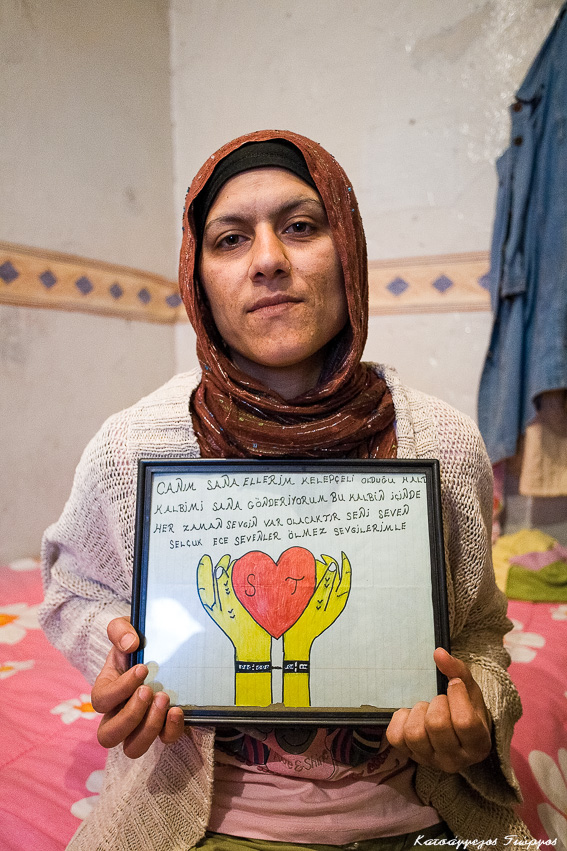 CANIM SANA ELLERIM KELEPÇELI OLDUĞU
KALBIMI SANA GÖNDERIYORUM BU KALBIN IÇINDE
HER ZAMAN SEVGIN VAR OLACAKTIR SENI SEVEN
SELÇUK ECE SEVENLER ÖLMEZ SEVGILERIMLE
S T
Κατσάγγελος Γιωργος